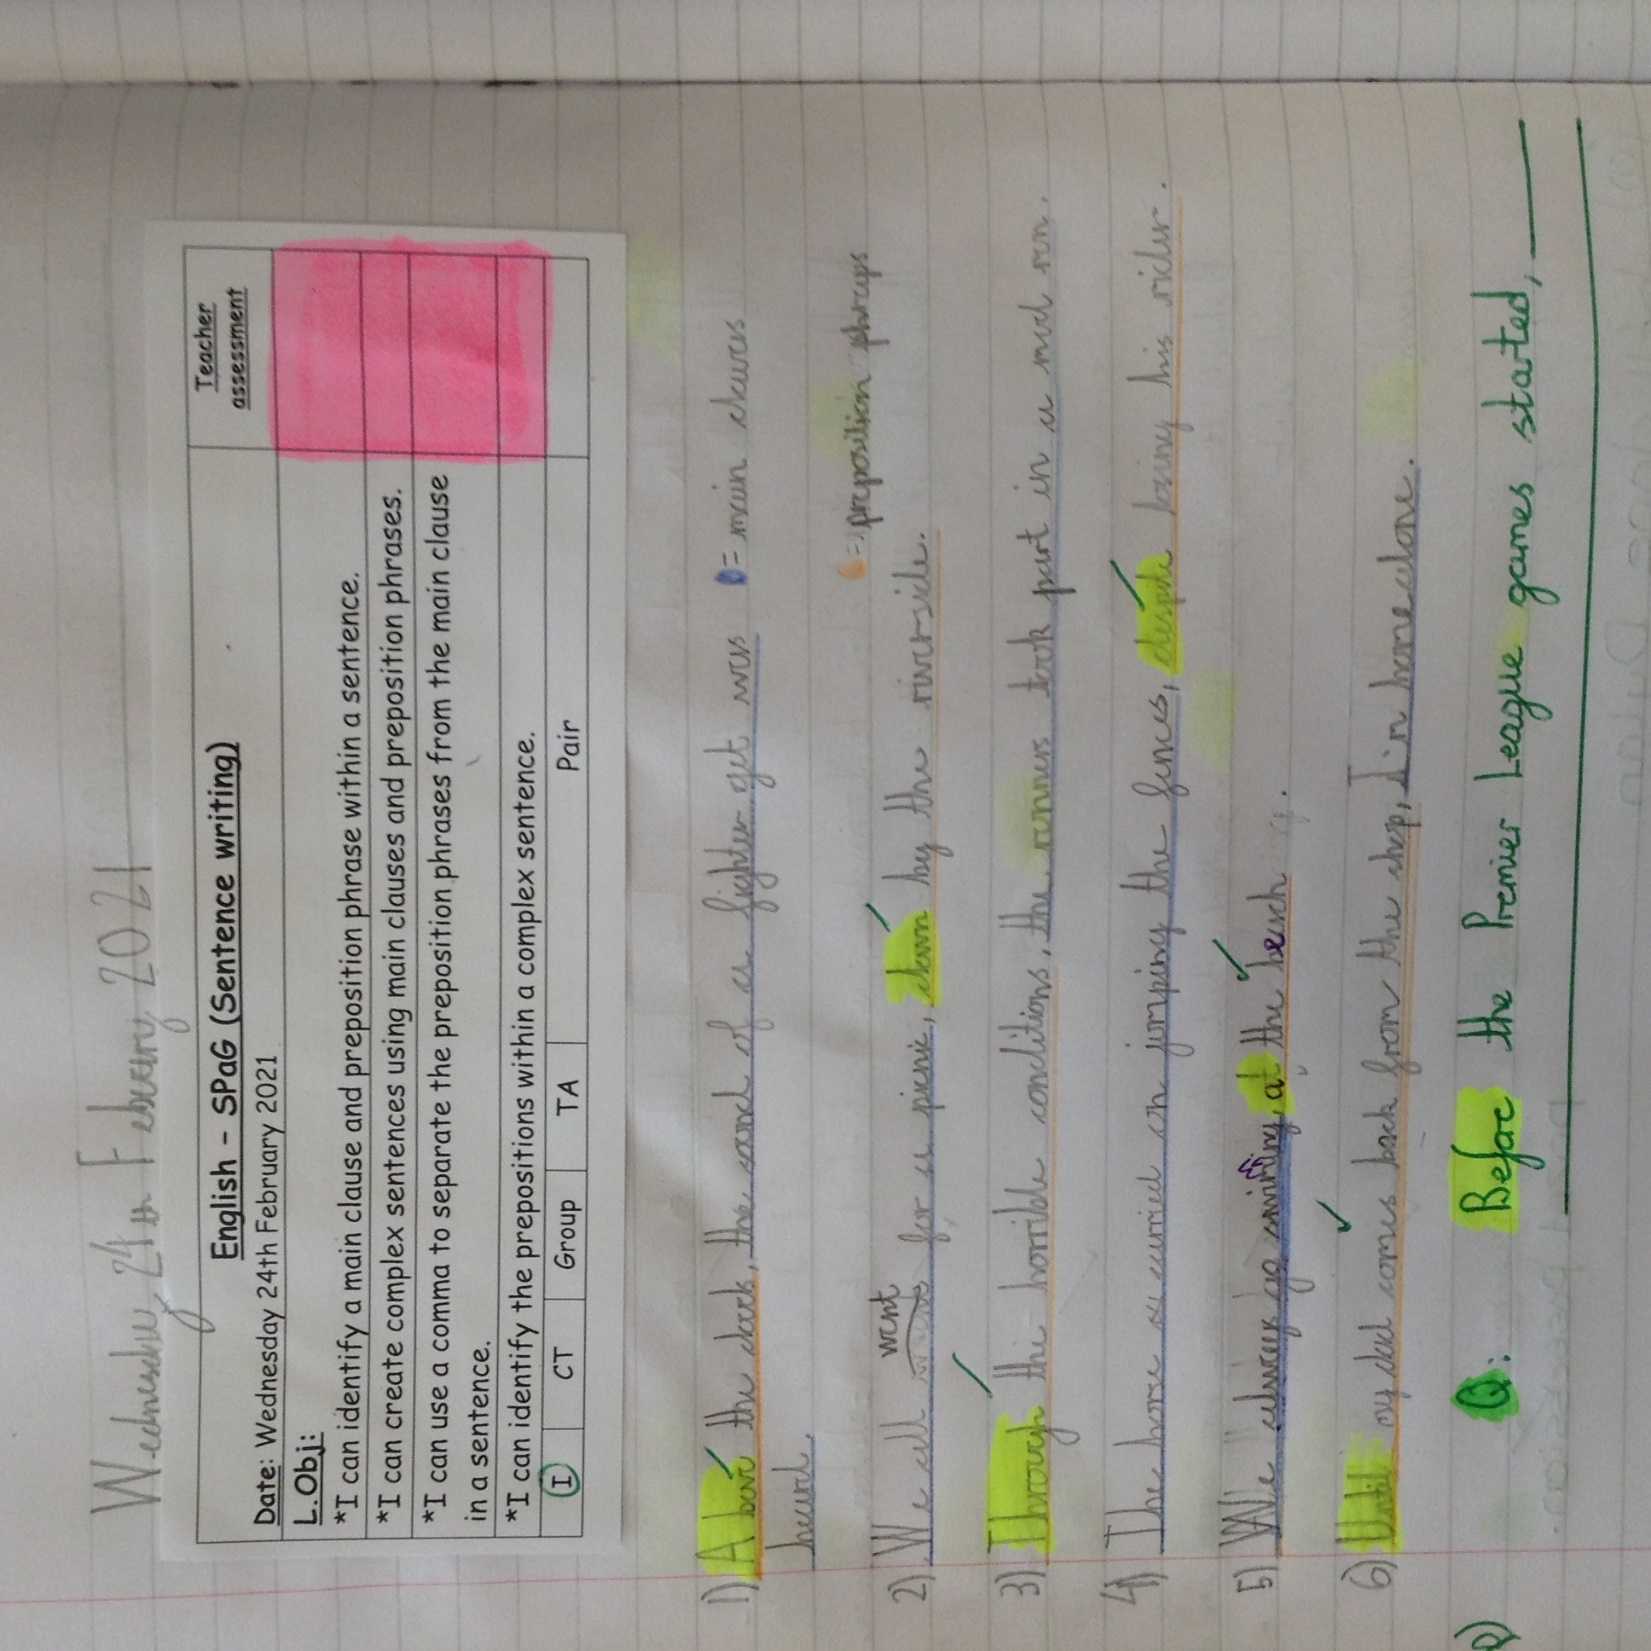 Wednesday, 24th Feburary, 2021
English - SPaG (Sentence writing)
Teacher assessment
Date: Wednesday 24th February 2021
L.Obj:
*I can identify a main clause and preposition phrase within a sentence.
*I can create complex sentences using main clauses and preposition phrases.
*I can use a comma to separate the preposition phrases from the main clause
in a sentence.
*I can identify the prepositions within a complex sentence.
I CT Group TA Pair
1) Above the dock, the sound of a fighter get was = main clawes
heard.
= preposition phraeps
went
2) We all for a picnic, down by the riverside.
3) Through the horrible conditions, the runners took part in a mud run.
4) The horse carried on jumping the fences, despite losing his rider.
5) We always go at the beach.
6) Until my dad comes back from the shop, I'm home alone.
Q: Before the Premier League games started,